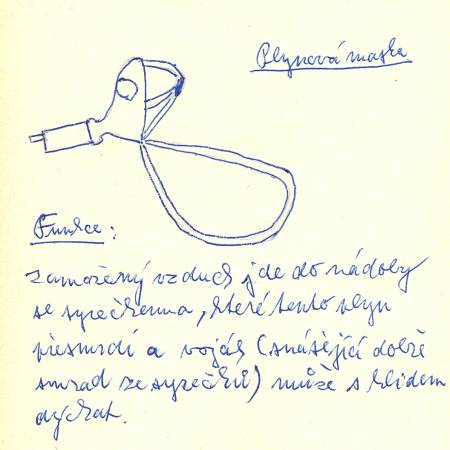 Plynová maska
Funkce:
zamořený vzduch jde do nádoby
se syrečkema, které tento plyn
přesmrdí a voják (snášející dobře
smrad ze syrečků) může s klidem
dýchat.